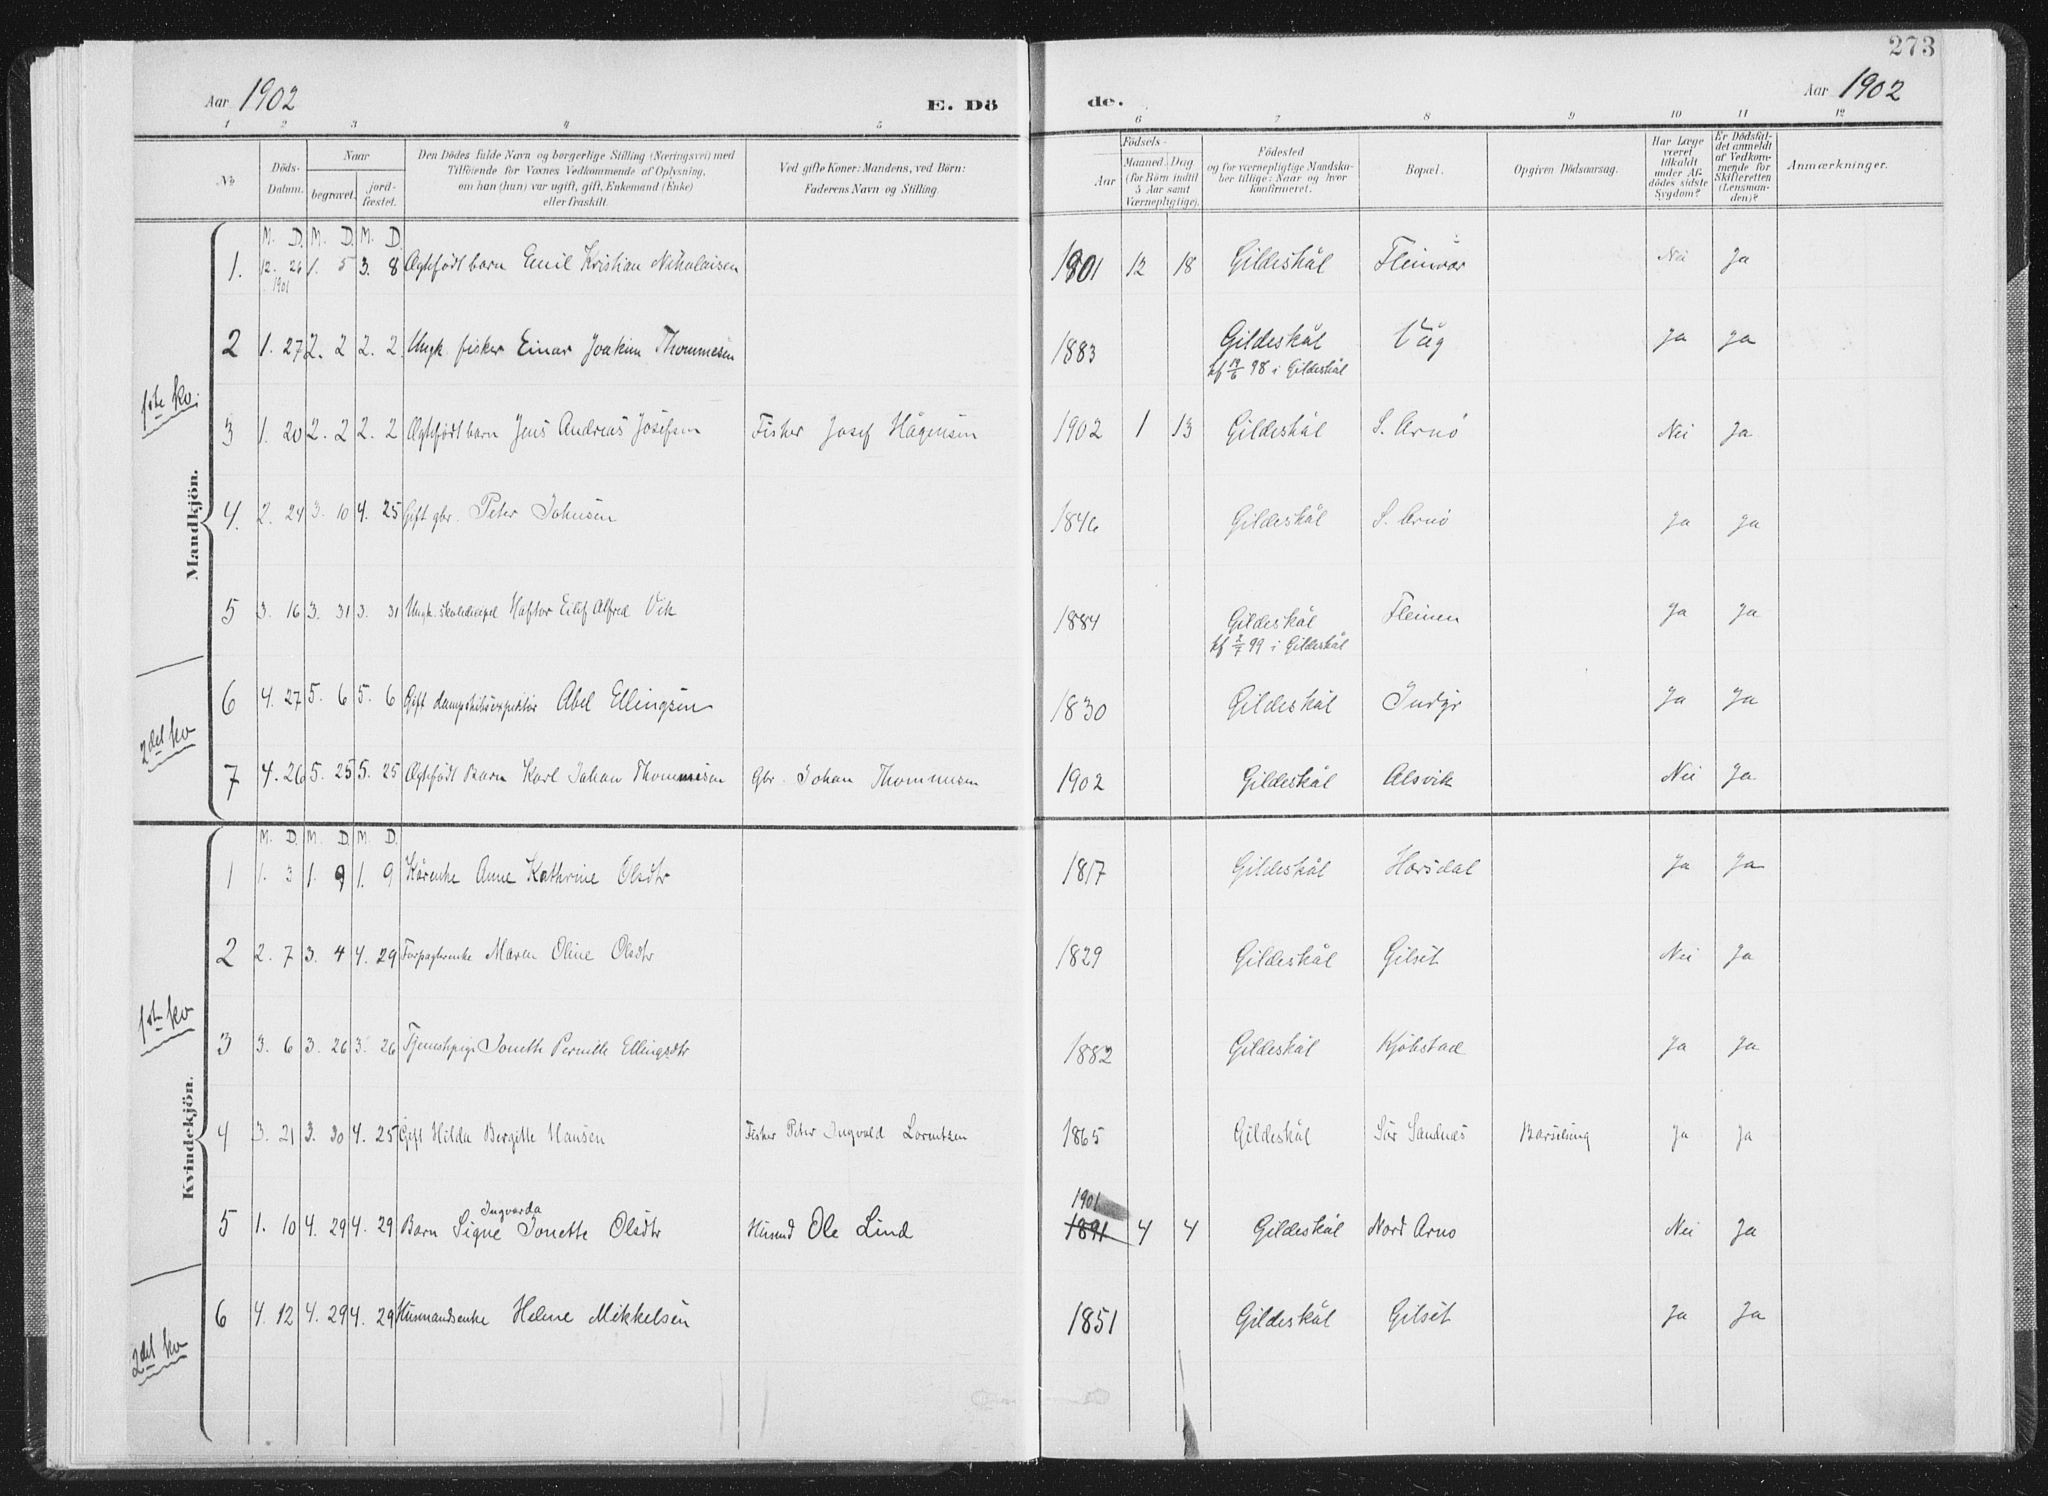 273
Aar 1902
E. Dö
de.
Aar 1902
1 2 3 4 5 6 7 8 9 10 11 12
No
Döds-Datum.
Naar
begravet.
jordfæstet.
Den Dödes fulde Navn og borgerlige Stilling (Næringsvei) med
Tilföiende for Voxnes Vedkommende af Oplysning,
om han (hun) var ugift, gift, Enkemand (Enke)
eller fraskilt.
Ved gifte Koner: Mandens, ved Börn:
Faderens Navn og Stilling.
Födsels-
Aar
Maaned. Dag
(for Börn indtil
5 Aar samt
Værnepligtige).
Födested
og for værnepligtige Mandskaber tillige: Naar og hvor
konfirmeret.
Bopæl.
Opgiven Dödsaarsag.
Har Læge
været
tilkaldt
under Afdödes sidste
Sygdom?
Er Dödsfaldet anmeldt
af Vedkommende for
Skifteretten
(Lensmanden)?
Anmærkninger.
Mandkjön.
1ste kv.
M. D. M. D. M. D.
1. 12. 26 1901 1. 5 3. 8 Ægtefødt barn Emil Kristian Nikolaisen 1901 12 18 Gildeskål Fleinvær Nei Ja
2 1. 27 2. 2 2. 2 Ungk. fisker Einar Joakim Thommesen 1883 Gildeskål Våg Ja Ja
kf 19/6 98 i Gildeskål
3 1. 20 2. 2 2. 2 Ægtefødt barn Jens Andreas Josefsen Fisker Josef Hågensen 1902 1 13 Gildeskål S. Arnø Nei Ja
4. 2. 24 3. 10 4. 25 Gift gbr. Peter Johnsen 1846 Gildeskål S. Arnø Ja Ja
5 3. 16 3. 31 3. 31 Ungk. skoledisipel Haftor Eilif Alfred Vik 1884 Gildeskål Fleinen Ja Ja
kf 2/7 99 i Gildeskål
2det kv
6 4. 27 5. 6 5. 6 Gift dampskibsexpeditør Abel Ellingsen 1830 Gildeskål Indyr Ja Ja
7 4. 26 5. 25 5. 25 Ægtefødt Barn Karl Johan Thommesen Gbr. Johan Thommesen 1902 Gildeskål Alsvik Nei Ja
Kvindekjön.
1ste kv
M. D. M. D. M. D.
1 1. 3 1. 9 1. 9 Kårenke Anne Kathrine Olsdtr 1817 Gildeskål Horsdal Ja Ja
2 2. 7 3. 4 4. 29 Forpagterenke Maren Oline Olsdtr 1829 Gildeskål Gilset Nei Ja
3 3. 6 3. 26 3. 26 Tjenestepige Jonette Pernille Ellingsdtr 1882 Gildeskål Kjøbstad Ja Ja
4 3. 21 3. 30 4. 25 Gift Hilda Bergitte Hansen Fisker Peter Ingvald Lorentsen 1865 Gildeskål Sør Sandnes Barselseng Ja Ja
Ingvarda 1901
5 1. 10 4. 29 4. 29 Barn Signe Jonette Olsdtr Husmd Ole Lind 1891 4 4 Gildeskål Nord Arnø Nei Ja
2det kv
6 4. 12 4. 29 4. 29 Husmandsenke Helene Mikkelsen 1851 Gildeskål Gilset Ja Ja